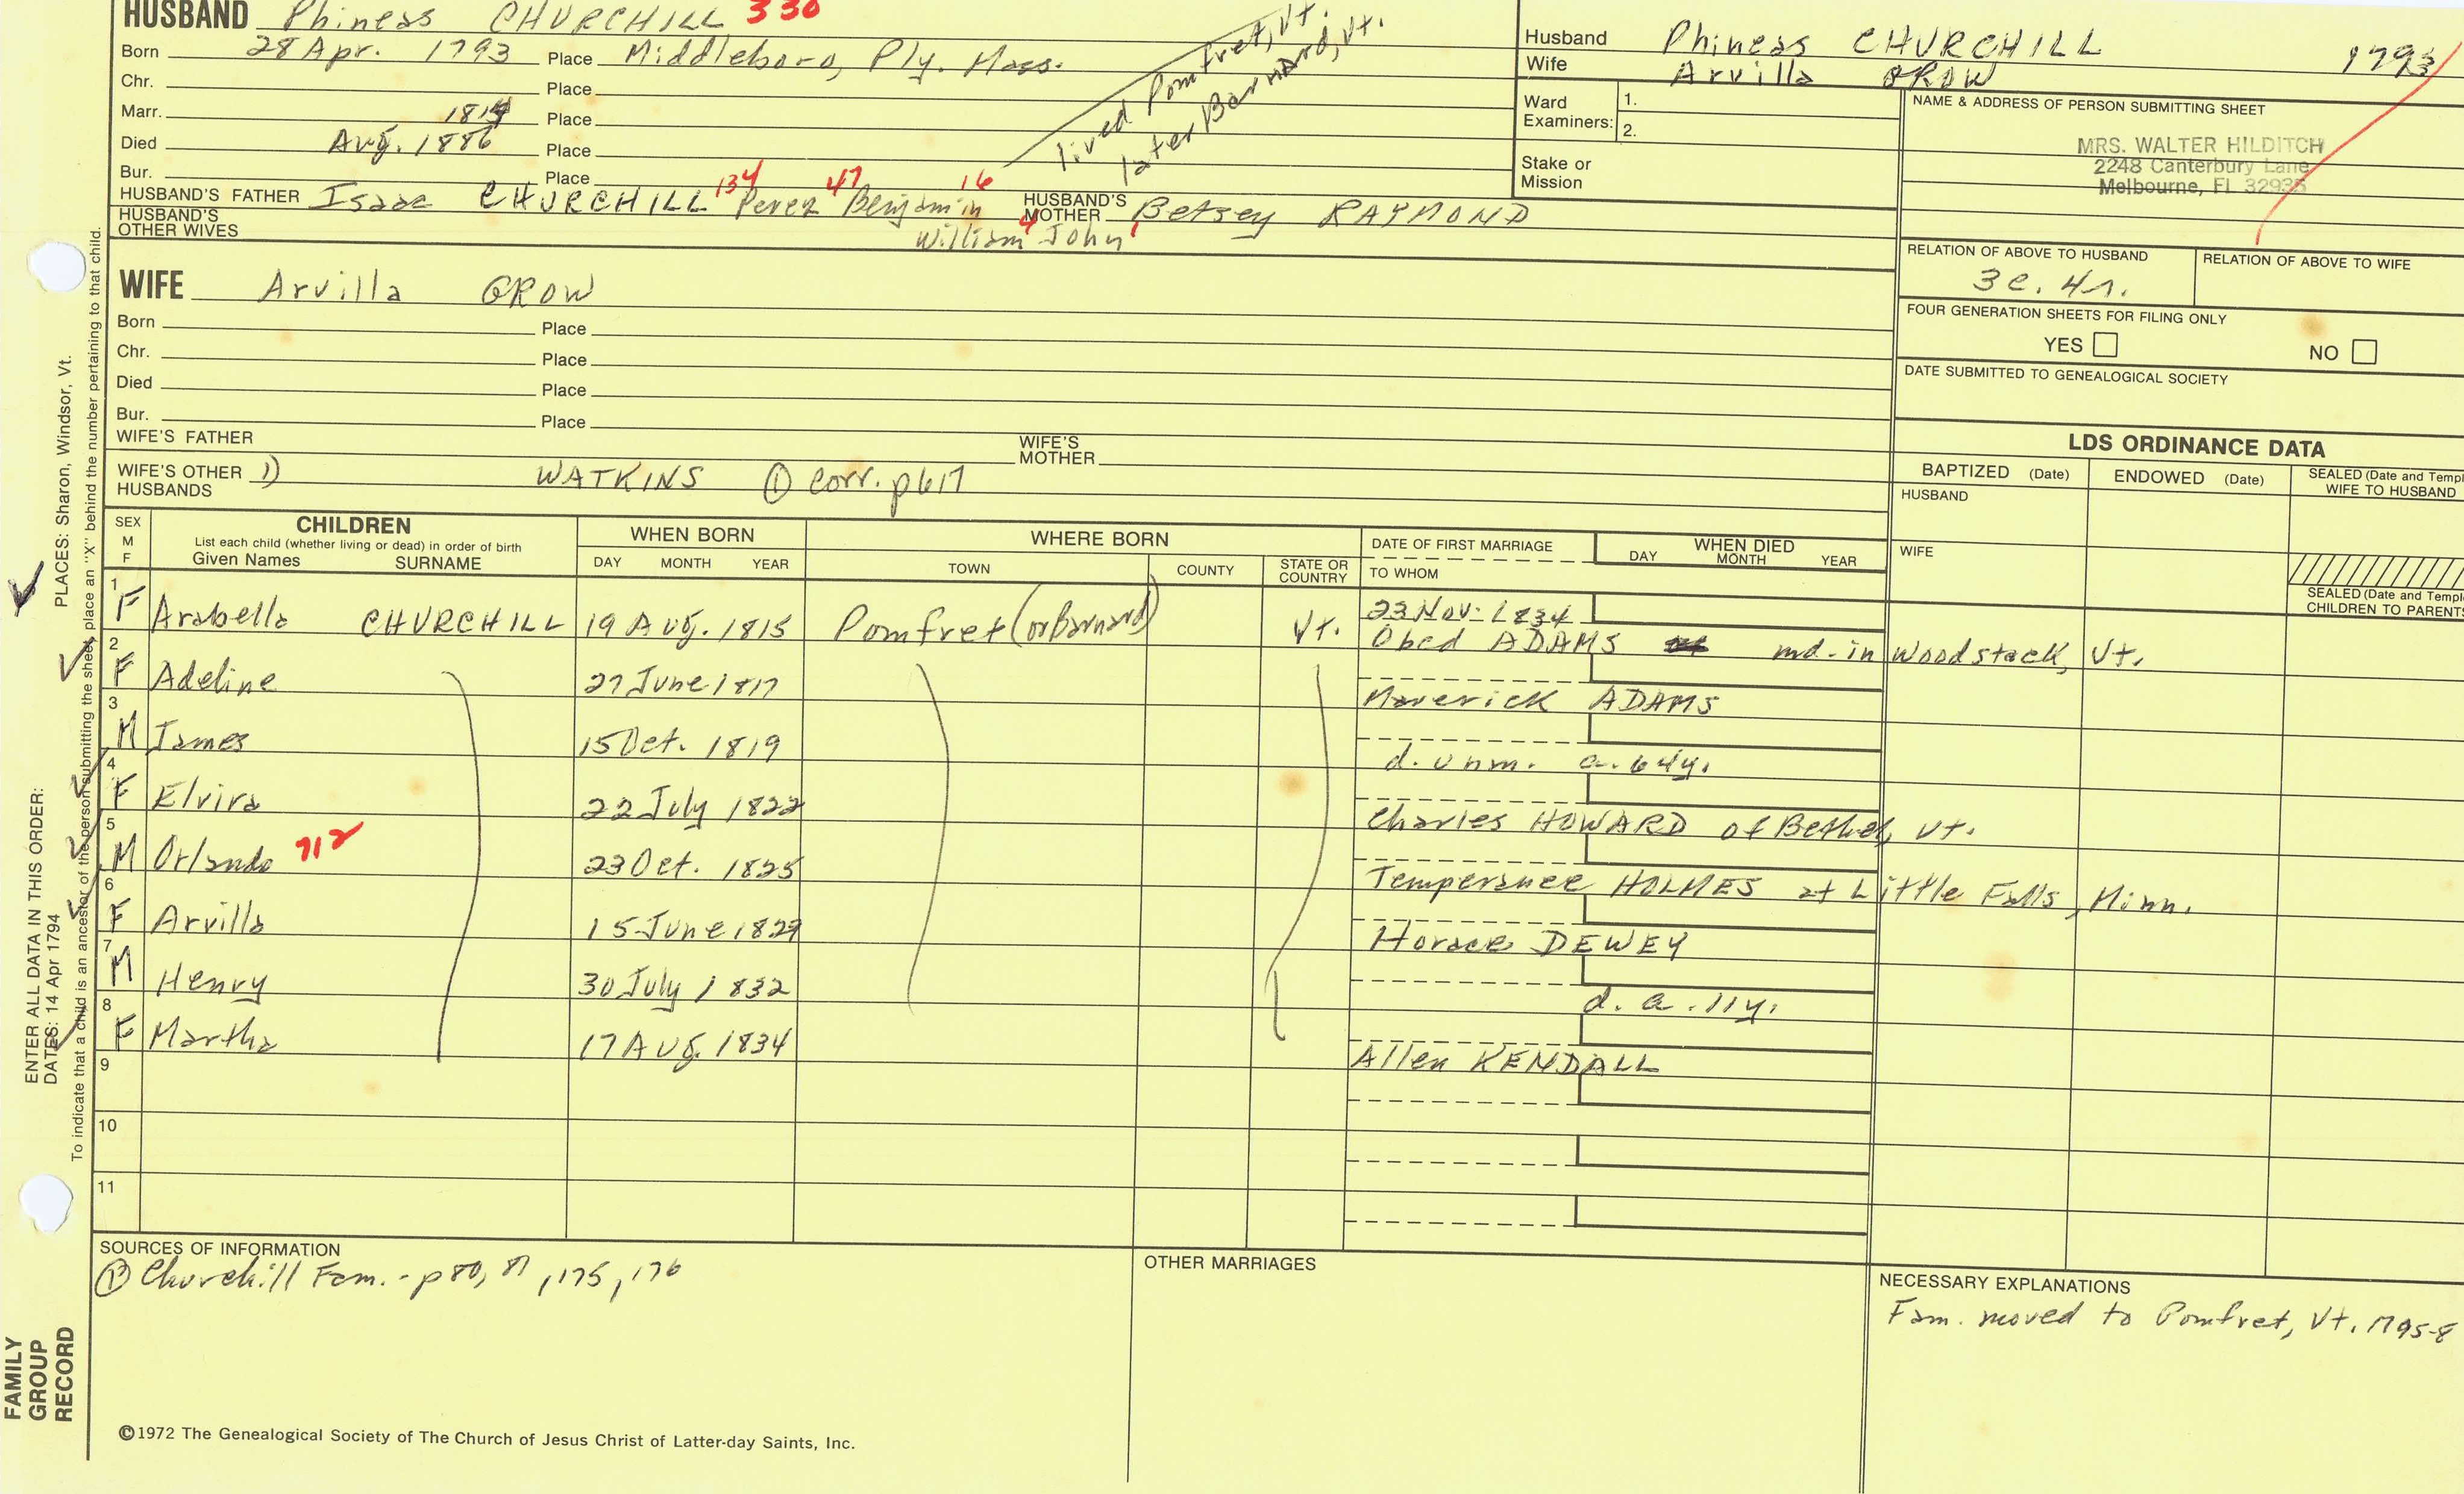 HUSBAND Phineas CHURCHILL 330
Born 28 Apr. 1793 Place Middleboro, Ply. Mass.
Chr. Place
Marr. 1814 Place
Died Aug. 1886 Place
Bur. Place
lived Pomfret, Vt.
later Barnard, Vt.
HUSBAND'S FATHER Isaac CHURCHILL 134 Perez 47 Benjamin 16 HUSBAND'S MOTHER Betsey RAYMOND
HUSBAND'S OTHER WIVES William 4 John 1
Husband Phineas CHURCHILL 1793
Wife Arvilla GROW
Ward Examiners: 1.
2.
Stake or Mission
NAME & ADDRESS OF PERSON SUBMITTING SHEET
MRS. WALTER HILDITCH
2248 Canterbury Lane
Melbourne, Fl 32935
RELATION OF ABOVE TO HUSBAND RELATION OF ABOVE TO WIFE
3c. 4r.
FOUR GENERATION SHEETS FOR FILING ONLY
YES NO
DATE SUBMITTED TO GENEALOGICAL SOCIETY
WIFE Arvilla GROW
Born Place
Chr. Place
Died Place
Bur. Place
WIFE'S FATHER WIFE'S MOTHER
WIFE'S OTHER HUSBANDS 1) WATKINS ① corr. p617
LDS ORDINANCE DATA
BAPTIZED (Date) ENDOWED (Date) SEALED (Date and Templ
WIFE TO HUSBAND
HUSBAND
WIFE
SEALED (Date and Templ
CHILDREN TO PARENTS
SEX M F CHILDREN WHEN BORN WHERE BORN DATE OF FIRST MARRIAGE WHEN DIED
List each child (whether living or dead) in order of birth
Given Names SURNAME DAY MONTH YEAR TOWN COUNTY STATE OR COUNTRY TO WHOM DAY MONTH YEAR
1 F Arabella CHURCHILL 19 Aug. 1815 Pomfret (or Barnard) Vt. 23 Nov. 1834
Obed ADAMS md. in Woodstock, Vt.
2 F Adeline 27 June 1817 Maverick ADAMS
3 M James 15 Oct. 1819 d. unm. a. 64y.
4 F Elvira 22 July 1822 Charles HOWARD of Bethel, Vt.
5 M Orlando 712 23 Oct. 1825 Temperance HOLMES at Little Falls, Minn.
6 F Arvilla 15 June 1829 Horace DEWEY
7 M Henry 30 July 1832 d. a. 11y.
8 F Martha 17 Aug. 1834 Allen KENDALL
9
10
11
SOURCES OF INFORMATION
① Churchill Fam. - p 80, 81, 175, 176
OTHER MARRIAGES
NECESSARY EXPLANATIONS
Fam. moved to Pomfret, Vt. 1795-8
©1972 The Genealogical Society of The Church of Jesus Christ of Latter-day Saints, Inc.
FAMILY GROUP RECORD
ENTER ALL DATA IN THIS ORDER:
DATES: 14 Apr 1794
PLACES: Sharon, Windsor, Vt.
To indicate that a child is an ancestor of the person submitting the sheet, place an "X" behind the number pertaining to that child.